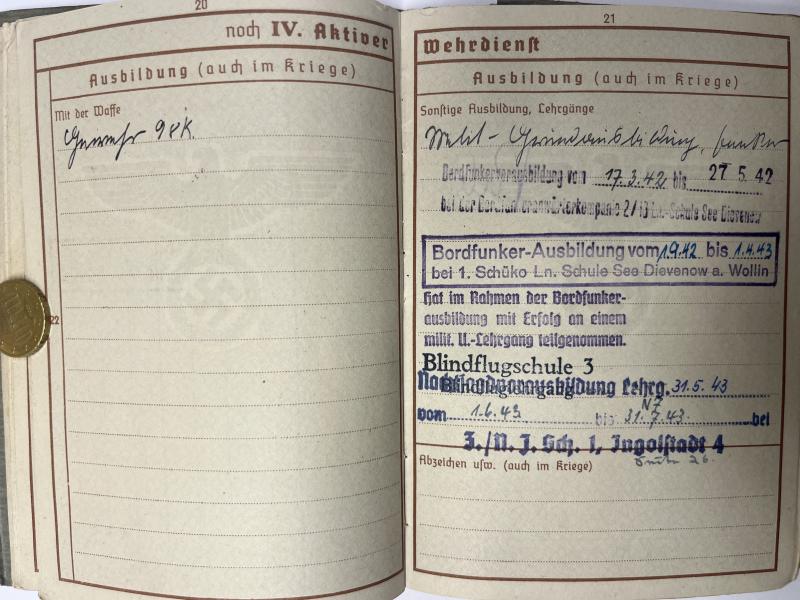 20
noch IV. Aktiver
Ausbildung (auch im Kriege)
Mit der Waffe
Gewehr 98k.
22
21
Wehrdienst
Ausbildung (auch im Kriege)
Sonstige Ausbildung, Lehrgänge
Milit - Grundausbildung, Funker
Bordfunkervorausbildung vom 17.3.42 bis 27 5. 42
bei der Bordfunkeranwärterkompanie 2/ Ln.-Schule See Dievenow
Bordfunker-Ausbildung vom 1.9.42 bis 1.4.43
bei 1. Schüko Ln. Schule See Dievenow a. Wollin
Hat im Rahmen der Bordfunker-
ausbildung mit Erfolg an einem
milit. U.-Lehrgang teilgenommen.
Blindflugschule 3
Lehrg. 31.5.43
vom 1.6.43 bis 31.7.43. bei
3./N. J. Sch. 1, Ingolstadt 4
Abzeichen usw. (auch im Kriege)